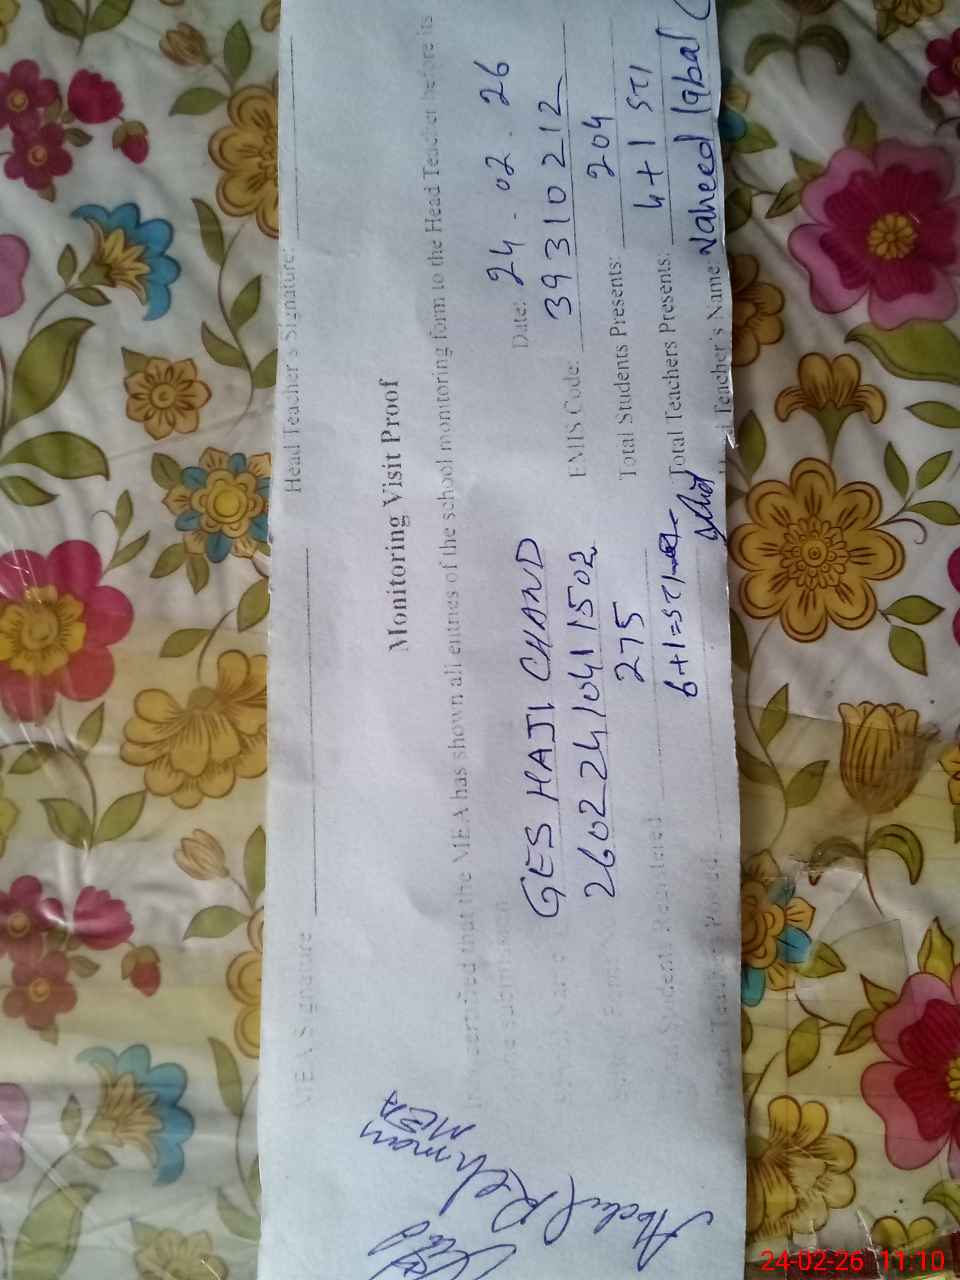 MEA Signature Head Teacher's Signature:
Monitoring Visit Proof
certified that the MEA has shown all entries of the school monitoring form to the Head Teacher before its
submission
Date: 24.02.26
GES HAJI CHAND EMIS Code: 39310212
2602241041150 2 Total Students Presents: 204
Students Registered 275 Total Teachers Presents: 4+1 STI
6+1=STI Teacher's Name: Naheed Iqbal
Abdul Rehman
MEA
24-02-26 11:10